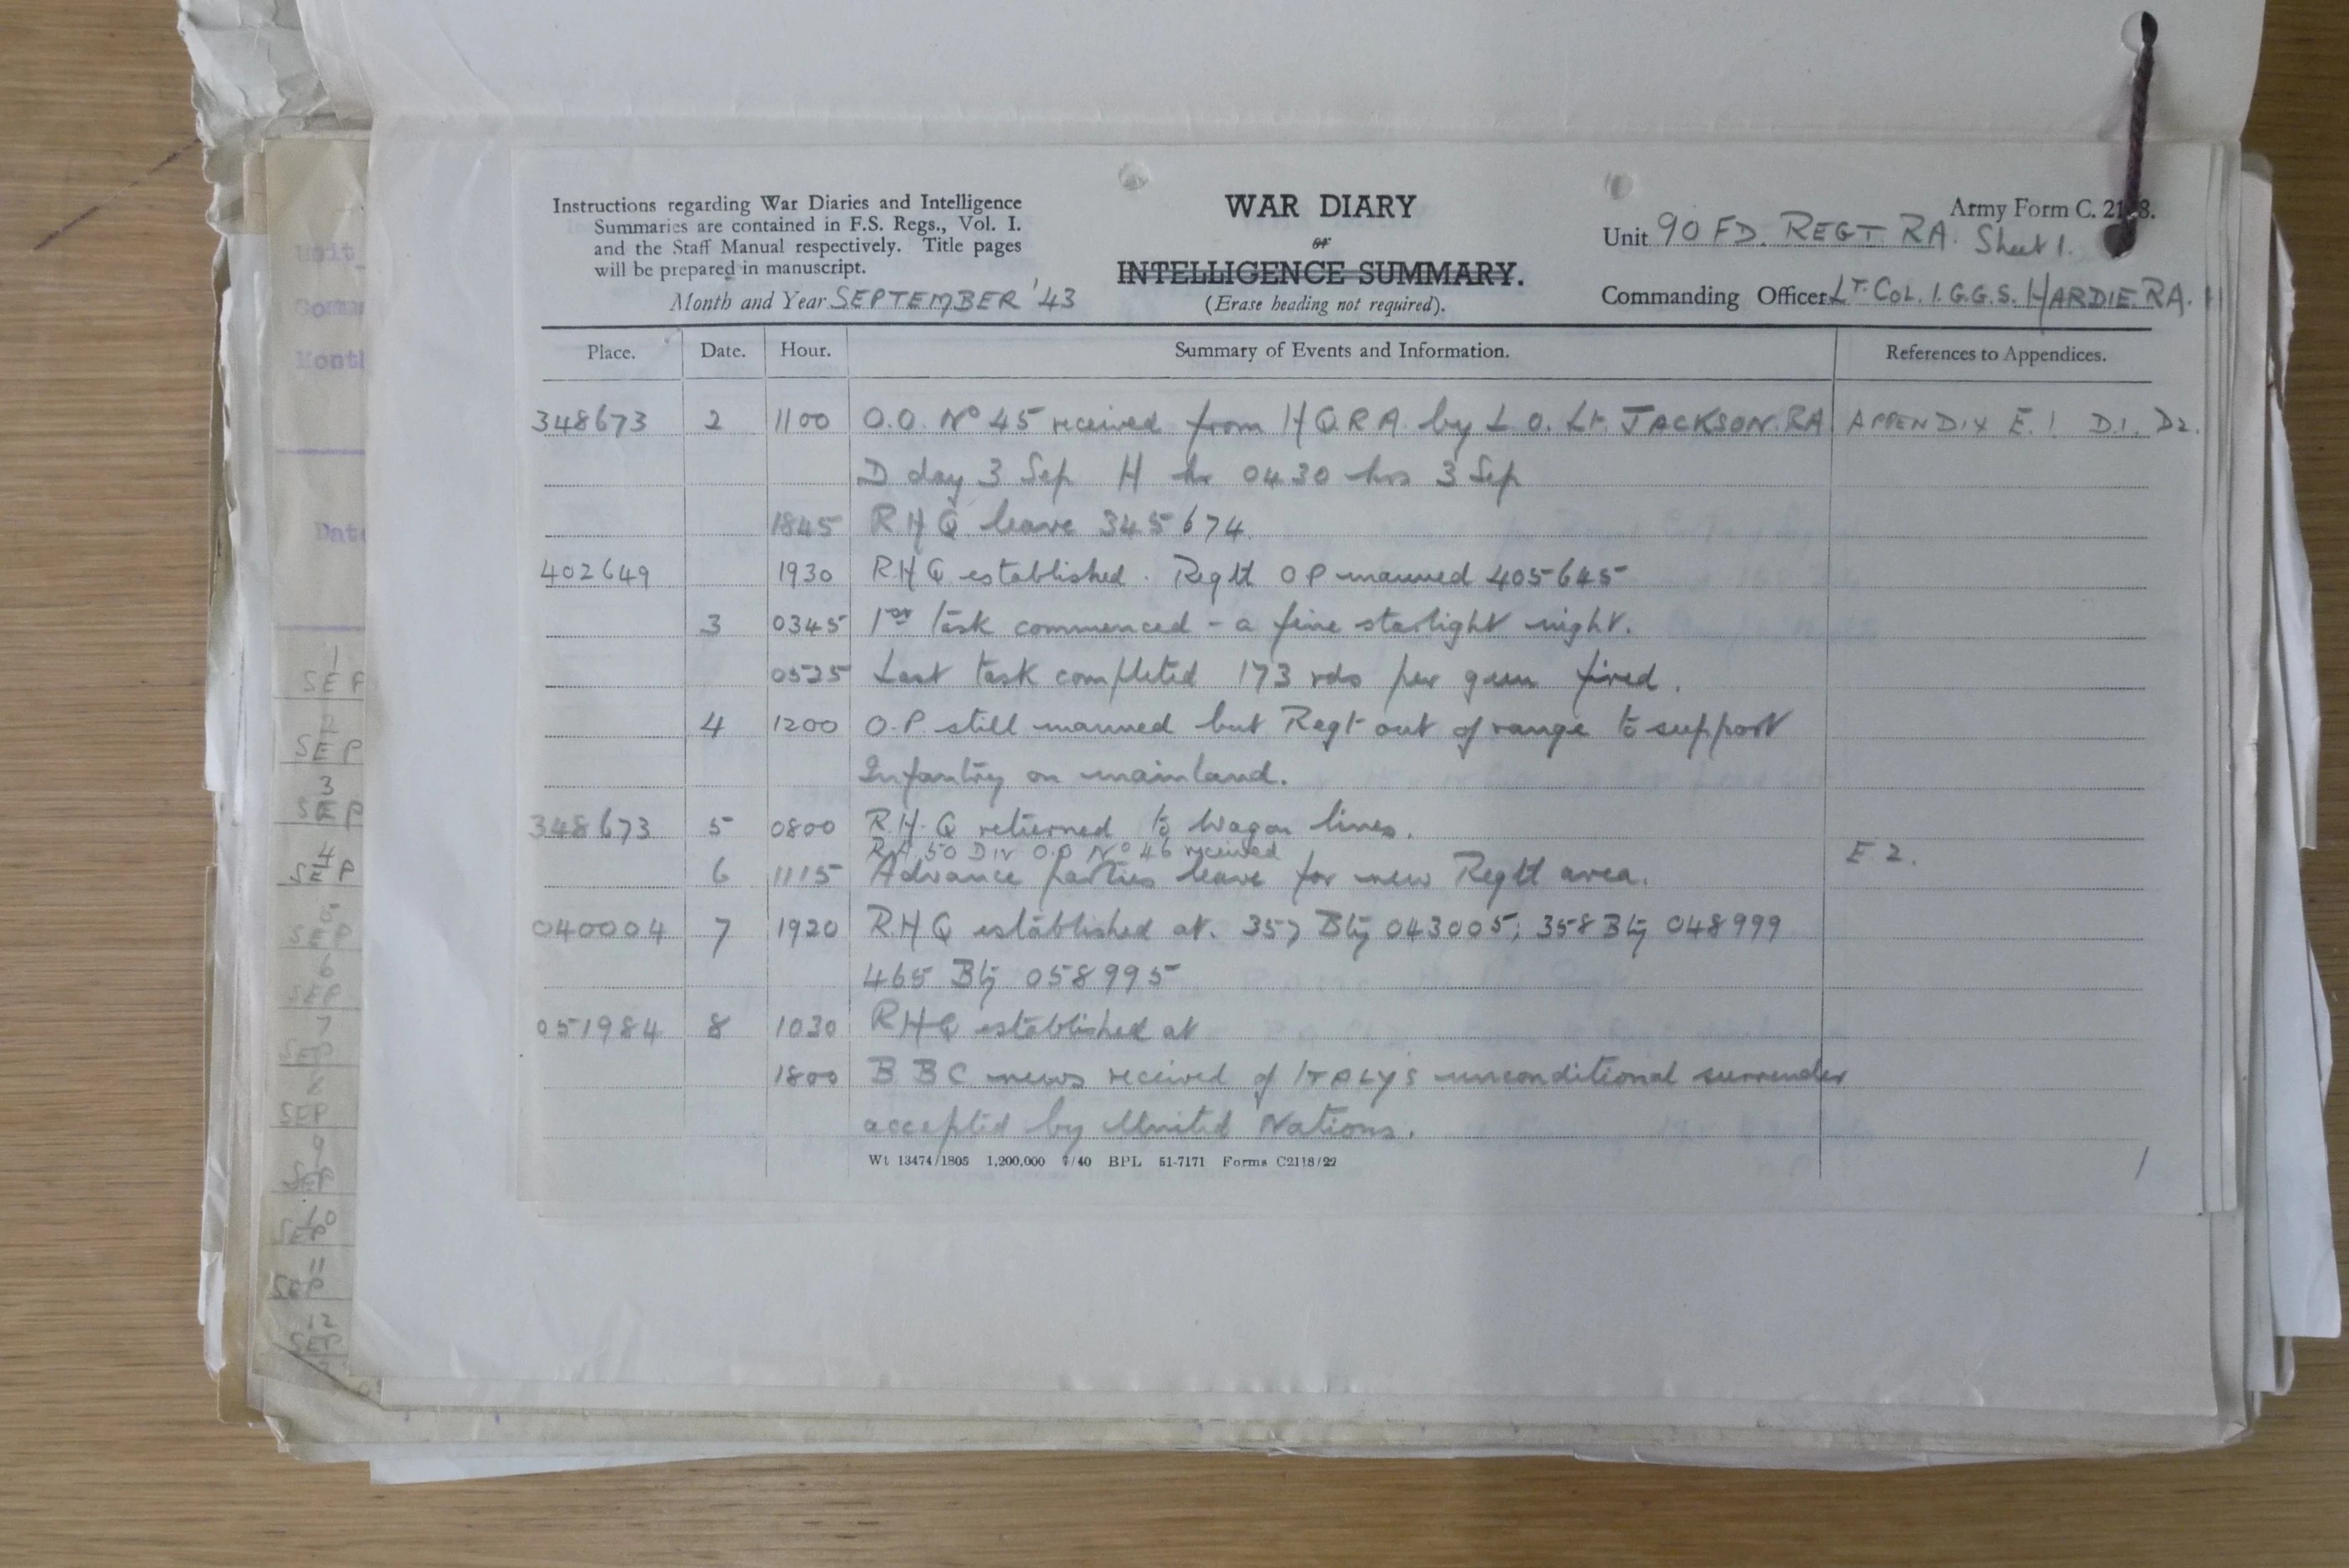 Instructions regarding War Diaries and Intelligence
Summaries are contained in F.S. Regs., Vol. I.
and the Staff Manual respectively. Title pages
will be prepared in manuscript.
Month and Year SEPTEMBER '43
WAR DIARY
or
INTELLIGENCE SUMMARY.
(Erase heading not required).
Army Form C. 2118.
Unit 90 FD. REGT RA. Sheet 1.
Commanding Officer LT. COL. I.G.G.S. HARDIE. RA.
Place. Date. Hour. Summary of Events and Information. References to Appendices.
348673 2 1100 O.O. No 45 received from HQRA by L.O. Lt. JACKSON. RA APPENDIX E.1 D.1. D2.
D day 3 Sep H hr 0430 hrs 3 Sep
1845 RHQ leave 345674.
402649 1930 RHQ established. Regtl OP manned 405645
3 0345 1st task commenced - a fine starlight night.
0525 Last task completed 173 rds per gun fired.
4 1200 O.P still manned but Regt out of range to support
Infantry on mainland.
348673 5 0800 R.H.Q returned to Wagon lines.
RA 50 DIV O.O No 46 received E 2.
6 1115 Advance parties leave for new Regtl area.
040004 7 1920 RHQ established at. 357 Bty 043005; 358 Bty 048999
465 Bty 058995
051984 8 1030 RHQ established at
1800 BBC news received of ITALY'S unconditional surrender
accepted by United Nations.
Wt 13474/1805 1,200,000 7/40 BPL 51-7171 Forms C2118/22
1
Unit
Comm
Mont
Date
1
SEP
2
SEP
3
SEP
4
SEP
5
SEP
6
SEP
7
SEP
8
SEP
9
SEP
10
SEP
11
SEP
12
SEP